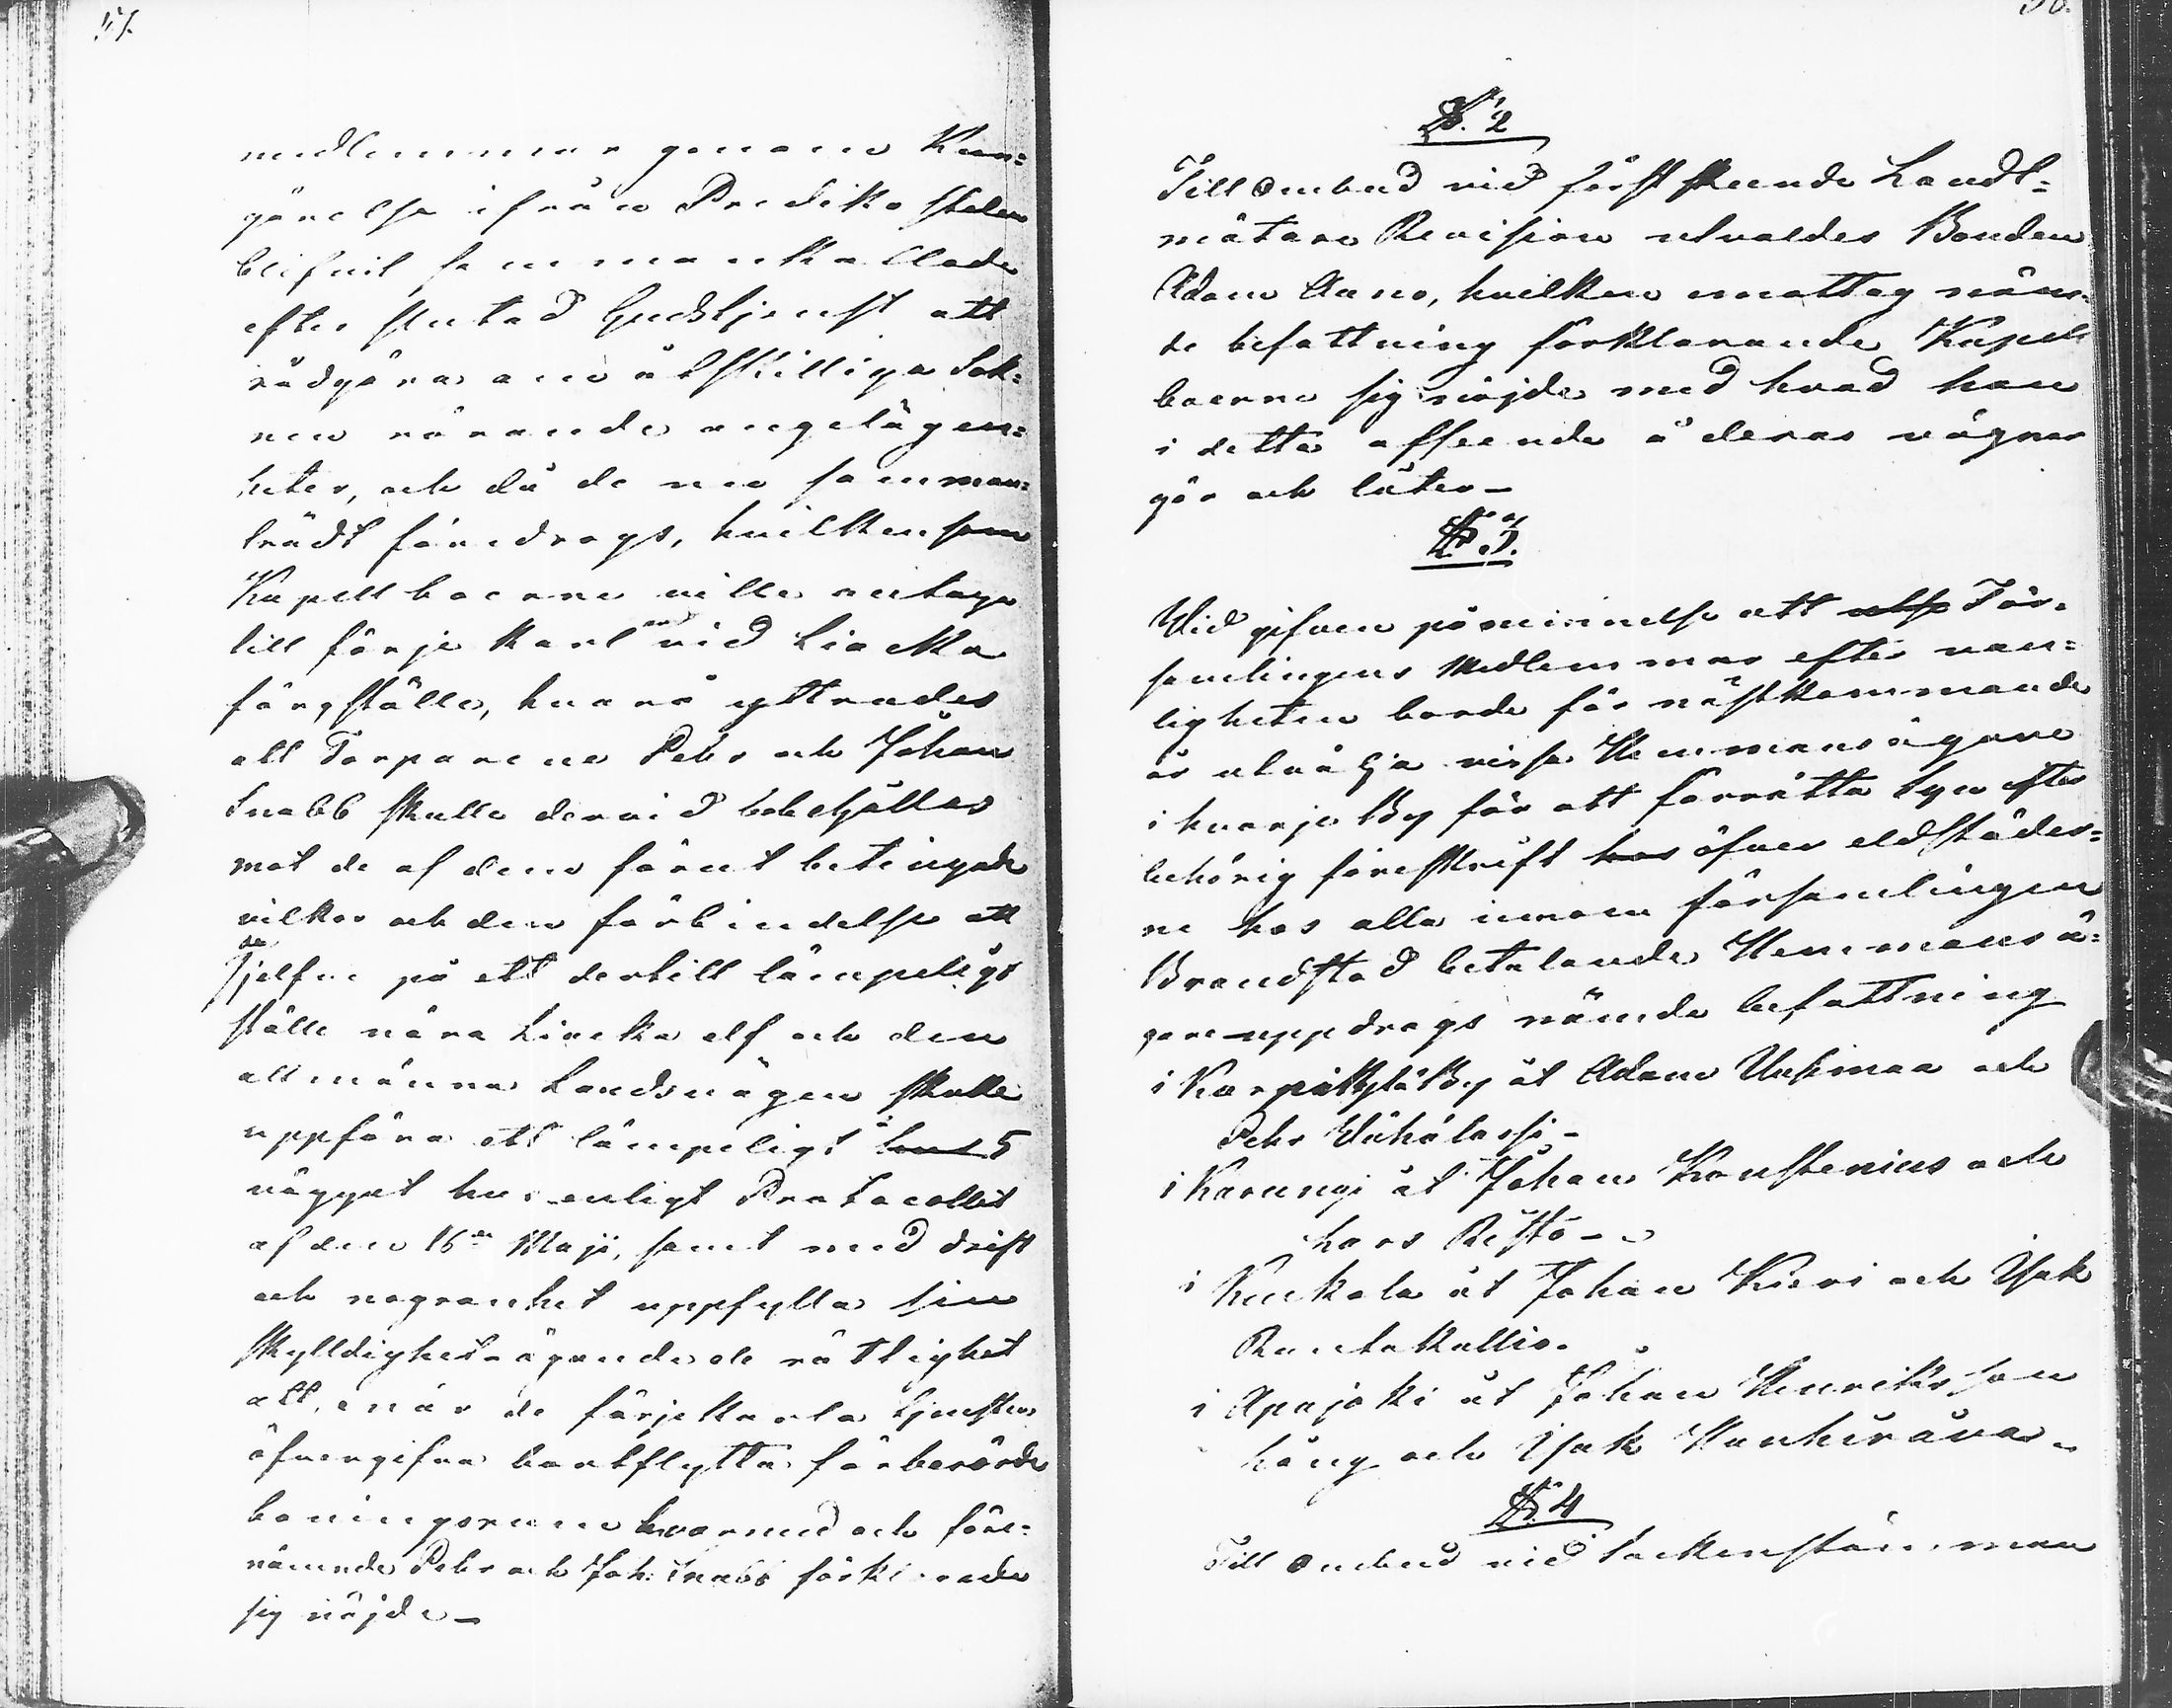 57.
medlemmar genom Kun=
görelse ifrån Prediko stolen
blifvit sammankallade
efter slutad Gudstjenst att
rådgöra om åtskilliga Sok=
nen rörande angelägen=
heter, och då de nu samman=
trädt föredrogs, hvilken som
Kapellboerne ville antaga
till färje karl vid Liakka
färgställe, hvarå yttrades
att Torparene Pehr och Johan
Snabb skulle dervid bebehållas
mot de af dem förut betingade
vilkor och den förbindelse att
de
sjelfve på ett dertill lämpeligt
ställe nära Liacka elf och den
allmänna Landsvägen skulle
uppföra ett lämpeligt hus 5
väggat hus enligt Protocollet
af den 16de Maji, samt med drift
och nogranhet uppfylla sin
skylldighet ägande de rättighet
att, enär de färjekarls tjensten
öfvergifva bortflytta förberörde
boningsrum hvarmed och före=
nämnde Pehr och Joh: Snabb förklarade
sig nöjde_
§. 2
Till ombud vid först skeende Landt=
mätare Revision utvaldes Bonden
Adam Auno, hvilken emottog näm=
de befattning förklarande Kapell
boerne sig nöjde med hvad han
i detta afseende å deras vägnar
gör och låter_
§ 3.
Vid gifven påminnelse att För=
samlingens Medlemmar efter van=
ligheten borde för nästkommande
år utvälja visse Hemmansägare
i hvarje By för att förrätta Syn efter
behörig föreskrift hos öfver eldstäder=
ne hos alla innom församlingen
Brandstod betalande Hemmansä=
gare uppdrogs nämde befattning
i Karpikylä By åt Adam Uusimaa och
Pehr Vähälassi_
i Karungi åt Johan Konstenius och
Lars Ristö_
i Kukkola åt Johan Kieri och Isak
Rantakallio.
i Apajoki åt Johan Henriksson
häng och Isak Hanhiväara_
§ 4
Till ombud vid Sockenstämman